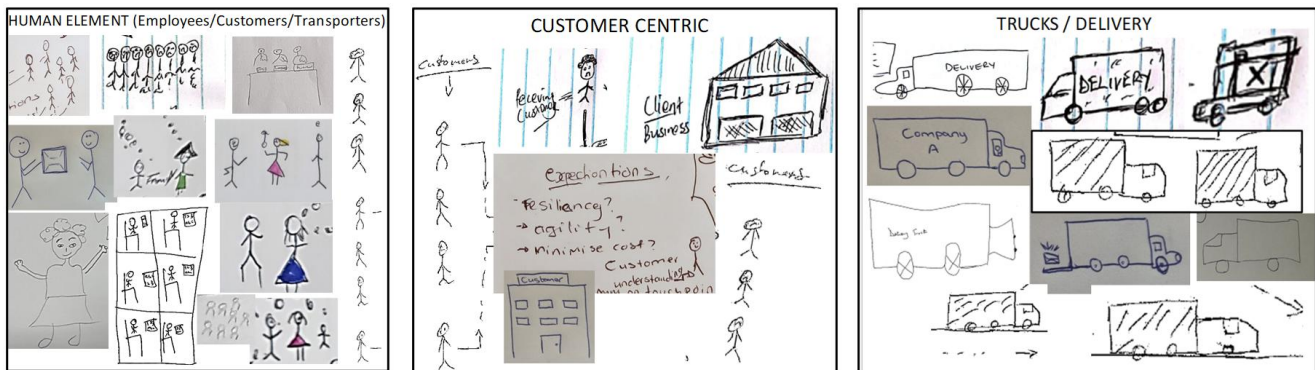 HUMAN ELEMENT (Employees/Customers/Transporters)
CUSTOMER CENTRIC
Customers
Receiving
Customer
Client
Business
expectations
resiliancy?
→ agility?
→ minimise cost?
Customer
understanding
Customer
Customers
TRUCKS / DELIVERY
DELIVERY
DELIVERY
X
Company
A
Delivery Truck